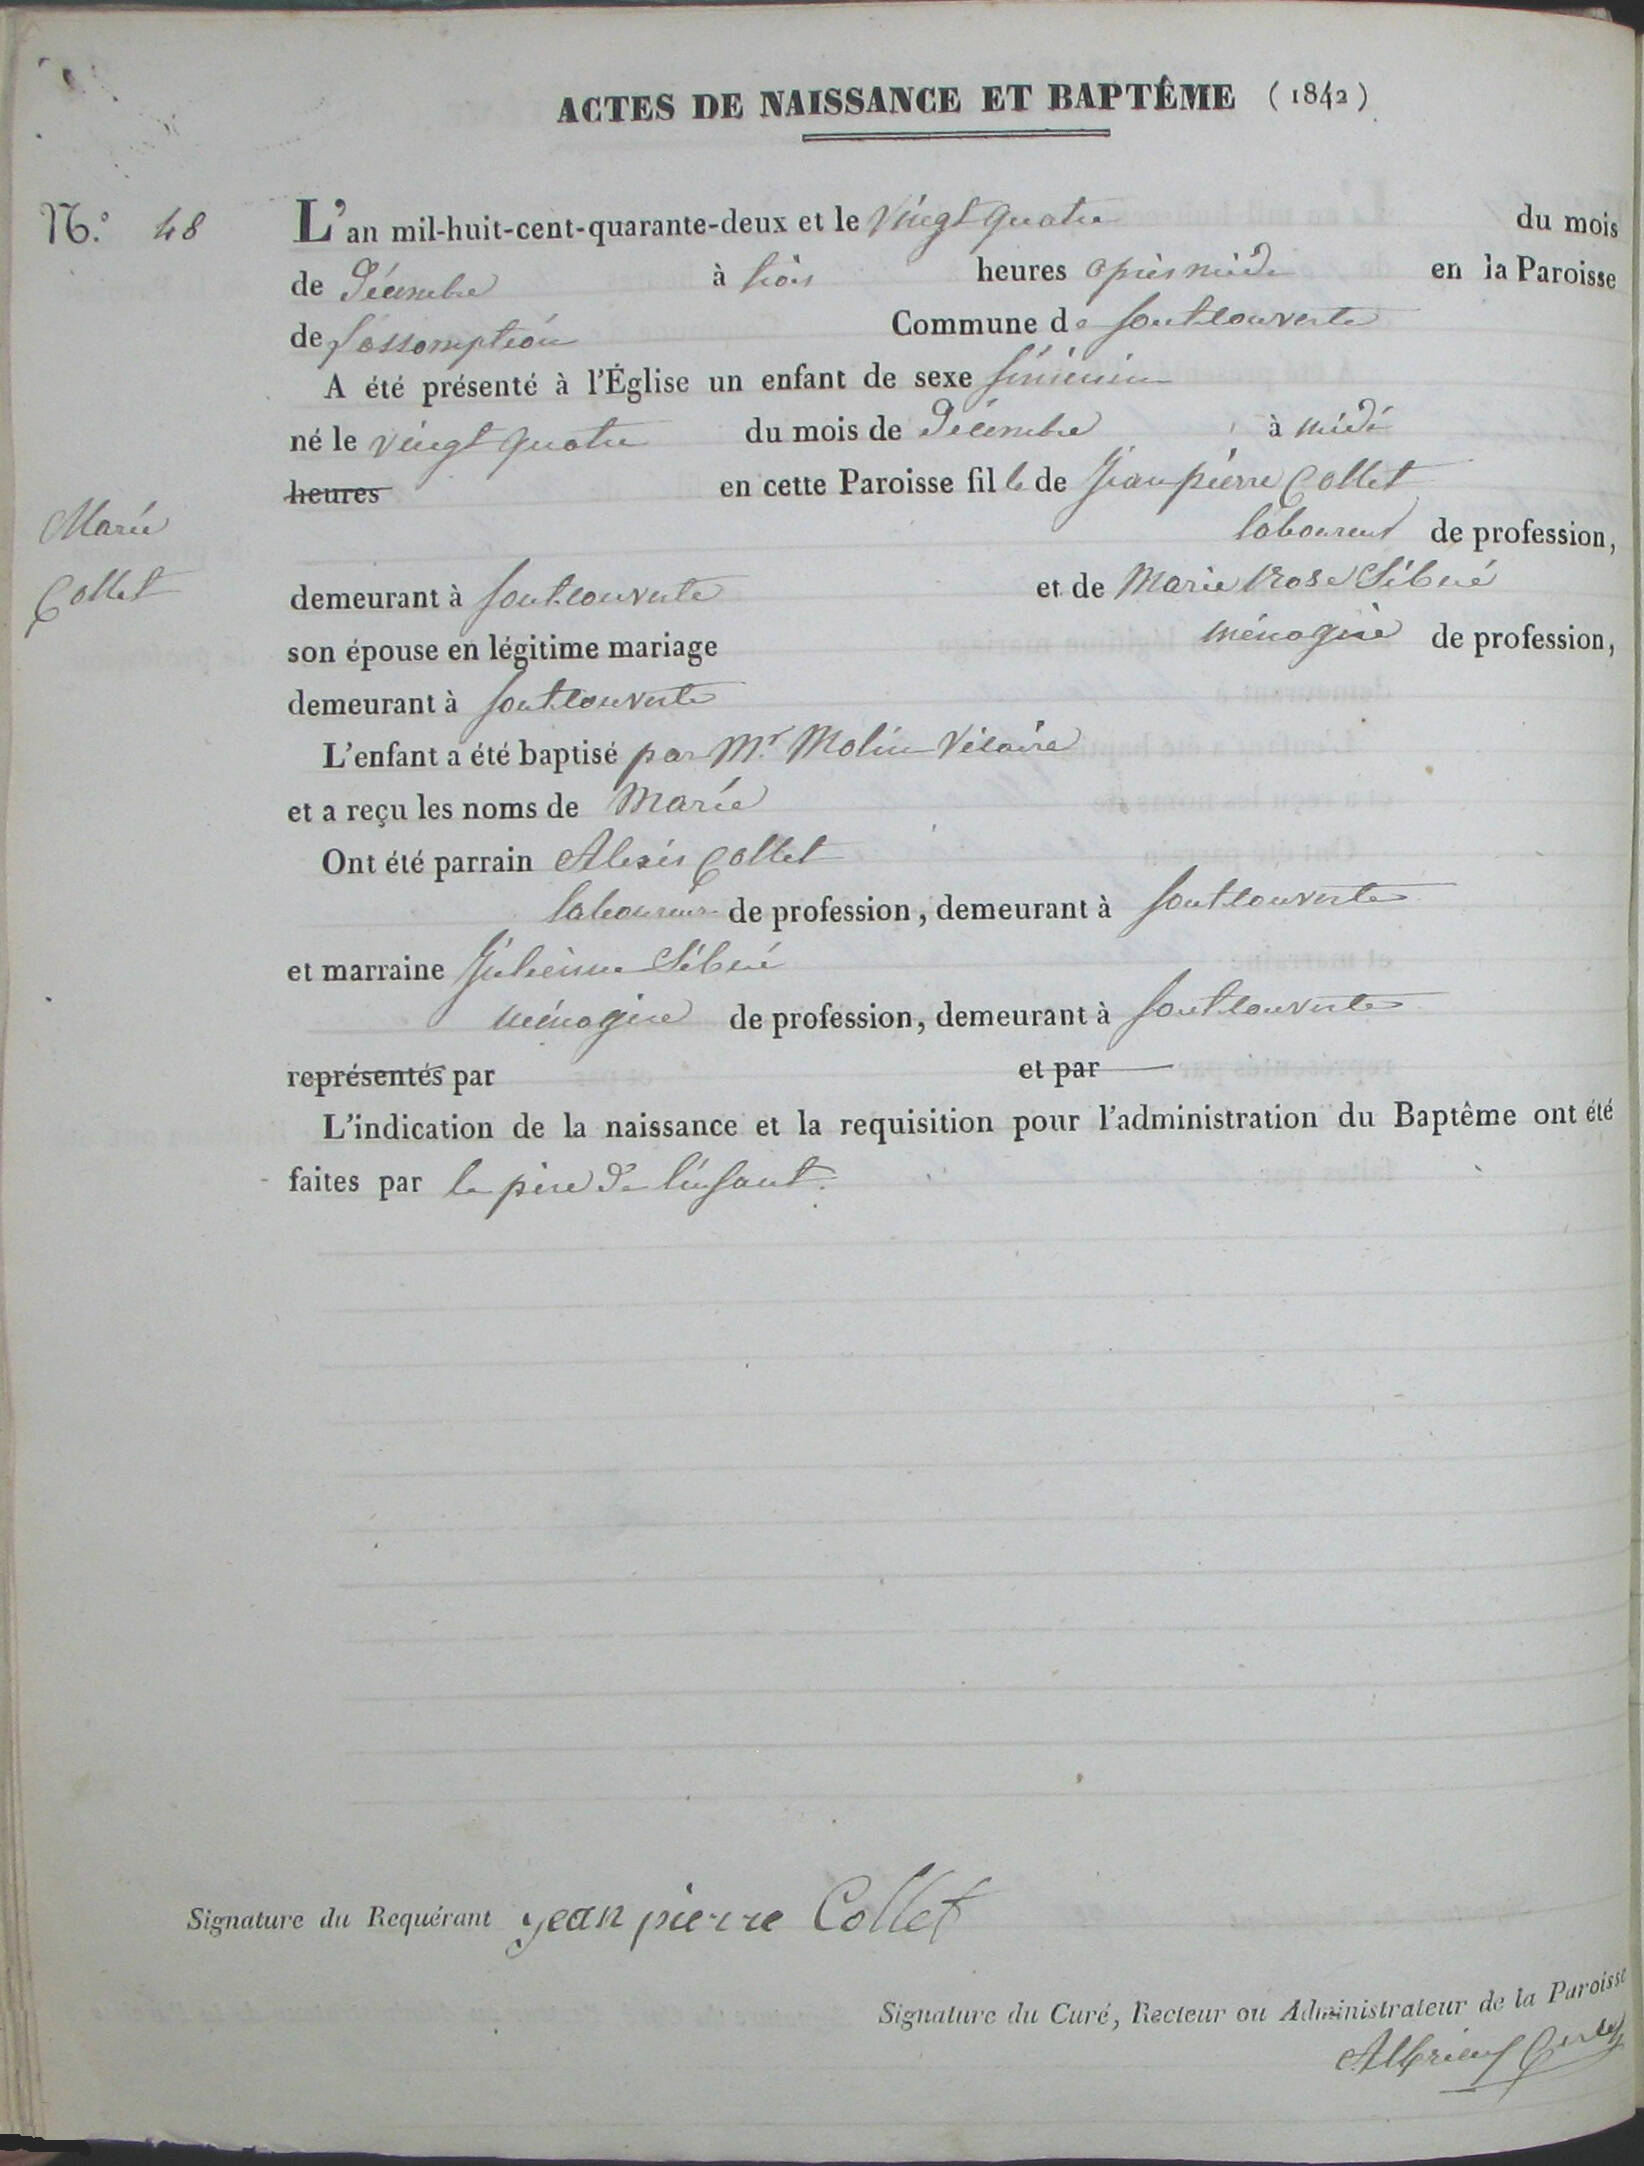 ACTES DE NAISSANCE ET BAPTÊME (1842)
N.° 48
L'an mil-huit-cent-quarante-deux et le vingt quatre du mois
de Décembre à trois heures après midi en la Paroisse
de l'assomption Commune de fontcouverte
A été présenté à l'Église un enfant de sexe féminin
né le vingt quatre du mois de Décembre à midi
heures en cette Paroisse fille de Jean pierre Collet
Marie
laboureur de profession,
Collet
demeurant à fontcouverte et de Marie Rose Sibué
son épouse en légitime mariage ménagère de profession,
demeurant à fontcouverte
L'enfant a été baptisé par Mr. Molin Vicaire
et a reçu les noms de Marie
Ont été parrain Alexis Collet
laboureur de profession, demeurant à fontcouverte
et marraine Julienne Sibué
ménagère de profession, demeurant à fontcouverte
représentés par et par
L'indication de la naissance et la requisition pour l'administration du Baptême ont été
faites par le père de l'enfant.
Signature du Requérant jean pierre Collet
Signature du Curé, Recteur ou Administrateur de la Paroisse